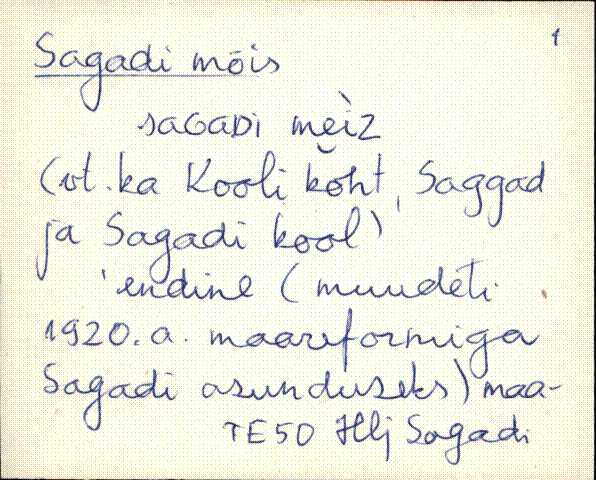 1
Sagadi mõis
sAGADI mèiz
(vt. ka Kooli kõht, Saggad
ja Sagadi kool)
'endine (muudeti
1920. a. maareformiga
Sagadi asunduseks) maa-
TE50 Hlj Sagadi